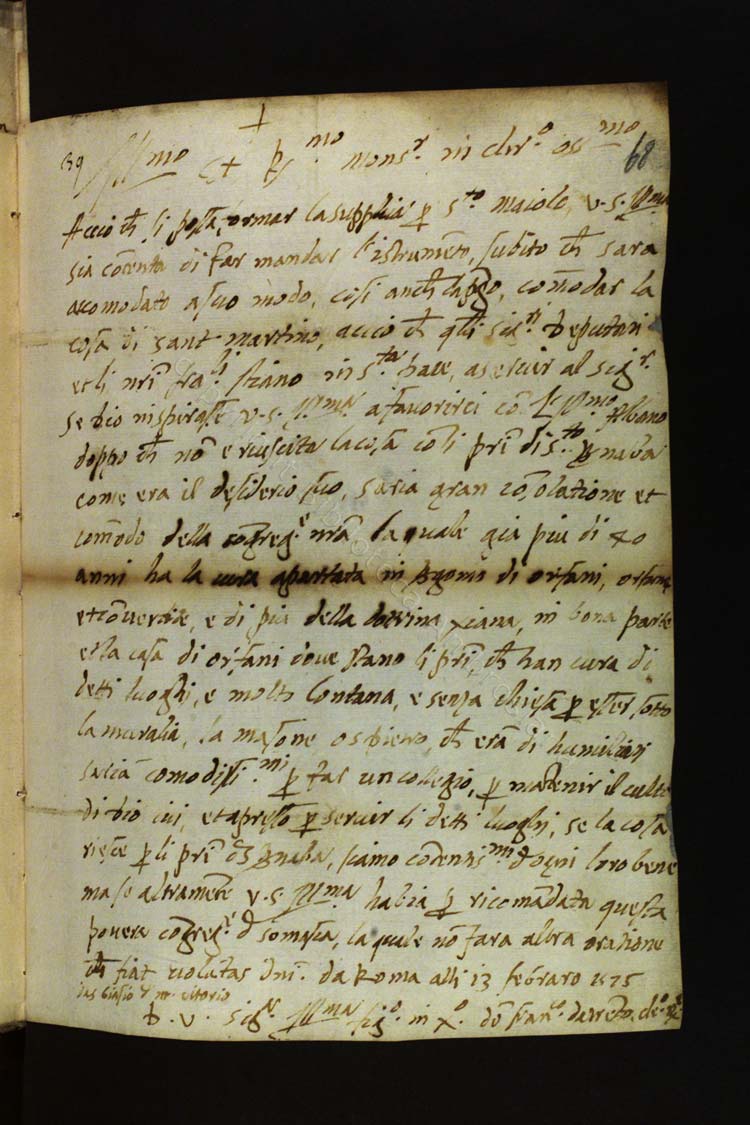 +
39 Ill.mo et R.mo Mons.r in chr.o oss.mo 68
Acciò ch si possa formar la supplica p s.to maiolo, v.s. Ill.ma
sia cōtenta di far mandar l'istrumēto, subito ch sara
acomodato a suo modo, cosi anch, comōdar la
cosa di sant martino, acciò ch qlli sig.ri deputati
et li nrī fra.lli stiano in s.ta pace, a servir al sig.r
se dio inspirasse v.s. Ill.ma a favorirci cō l'Ill.mo Albano
doppo ch nō e riuscita la cosa cō li prī di s.to Bnaba
come era il desiderio suo, saria gran cōsolatione et
comōdo della cōgreg.e nrā, la quale gia piu di 40
anni ha la cura apostata in Bgomo di orfani, orfane
et cōvertite, e di piu della dotrina xiana, in bona parte
et la casa di orfani dove stano li prī, ch han cura di
detti luoghi, e molto lontana, e senza chiesa p esser sotto
la muralia, la masone o s pietro, ch erā di humiliati
sariā comodissi.mi p far un collegio, p mātenir il culto
di dio ivi, et apresso p servir li detti luoghi, se la cosa
riesce p li prī di s Bnaba, siamo cōtentiss.mi d ogni loro bene
ma se altramēte v.s. Ill.ma habia p ricomādata questa
povera cōgreg.e d somasca, la quale nō fara altra oratione
ch fiat volūtas dnī. da Roma alli 13 febraro 1575
in s biasio d m.te citorio
D. v. sig. Ill.ma fig.o in x.o dō Fran.co da Trēto